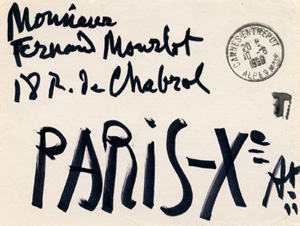 Monsieur
Fernand Mourlot
18 R. de Chabrol
PARIS-Xe
CANNES-ENTREPOT
ALPES MMES